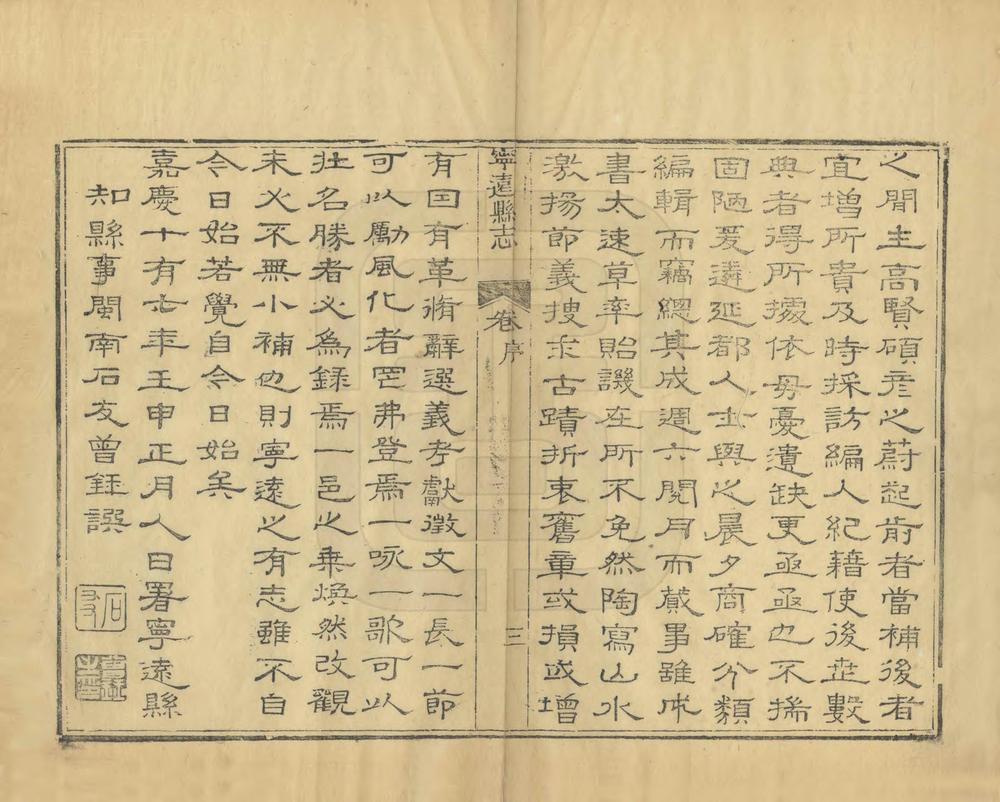 之間生高賢碩彥之蔚起前者當補後者
宜增所貴及時採訪編人紀籍使後世數
典者得所據依毋憂遺缺更亟亟也不揣
固陋爰遴延都人士與之晨夕商確分類
編輯而竊總其成週六閱月而蕆事雖成
書太速草率貽譏在所不免然陶寫山水
激揚節義搜求古蹟折衷舊章或損或增
寧遠縣志
卷序
三
有因有革脩辭選義考獻徵文一長一節
可以勵風化者罔弗登焉一咏一歌可以
壯名勝者必為錄焉一邑之乗煥然改觀
未必不無小補也則寧遠之有志雖不自
今日始若覺自今日始矣
嘉慶十有七年壬申正月人日署寧遠縣
知縣事閩南石友曾鈺譔
石友